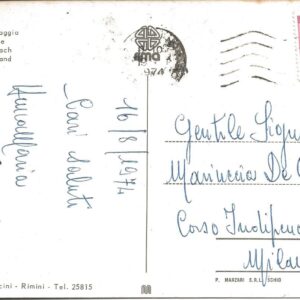 aggia
e
ach
and
1974
16/8/1974
Cari saluti
Annamaria
Gentile Sign
Mariuccia De
Corso Indipen
Milan
cini - Rimini - Tel. 25815
P. MANZARI S.R.L. SCHIO